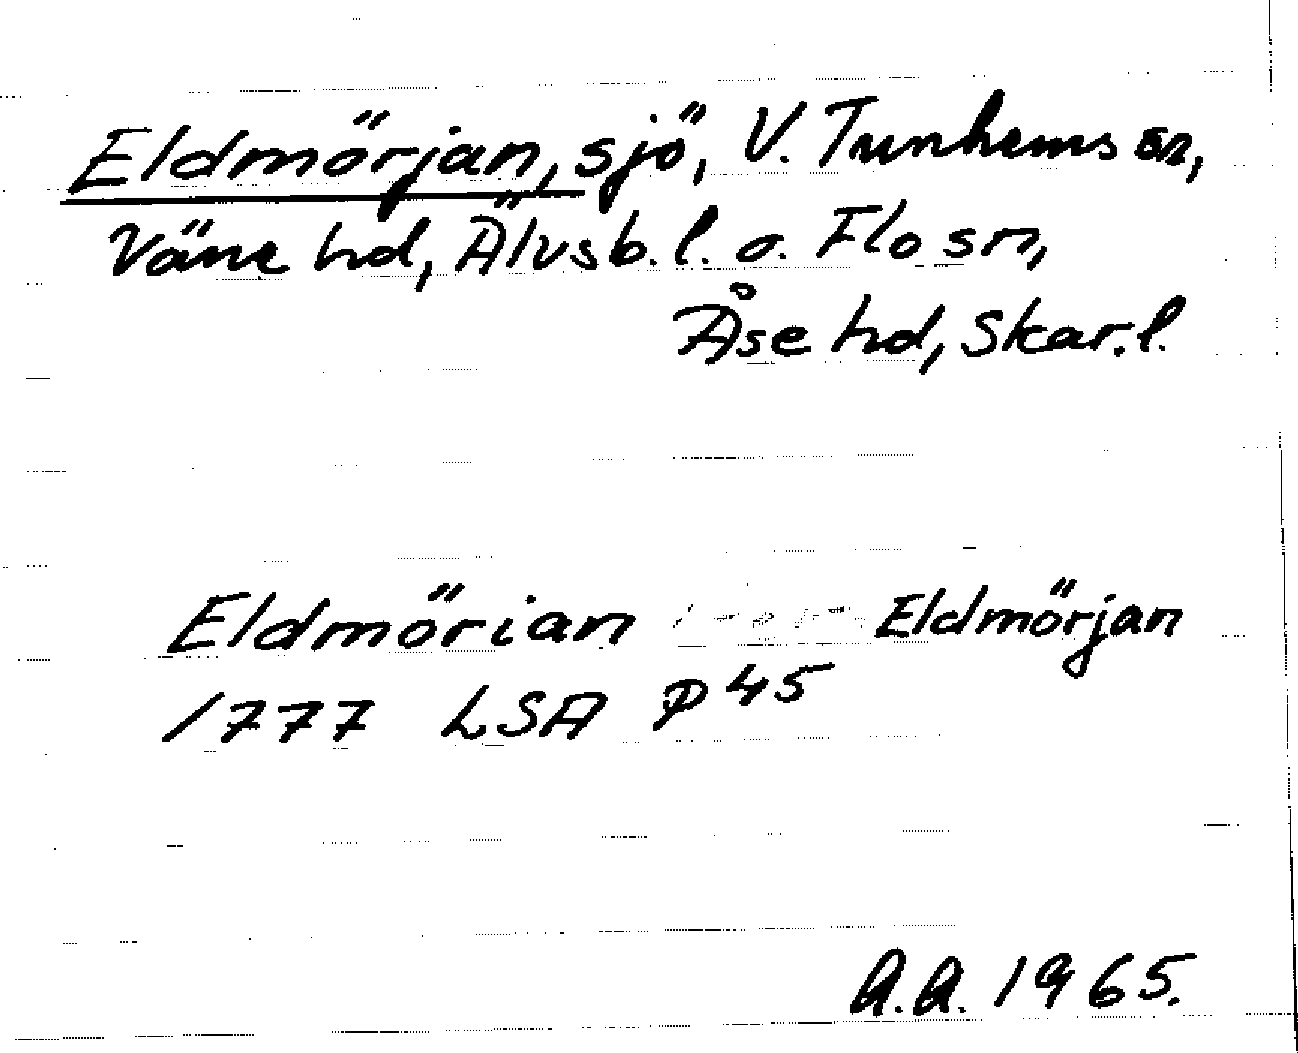 Eldmörjan, sjö, V. Tunhems sn,
Väne hd, Älvsb. l. o. Flo sn,
Åse hd, Skar. l.
Eldmörian Eldmörjan
1777 LSA P 45
A.A. 1965.